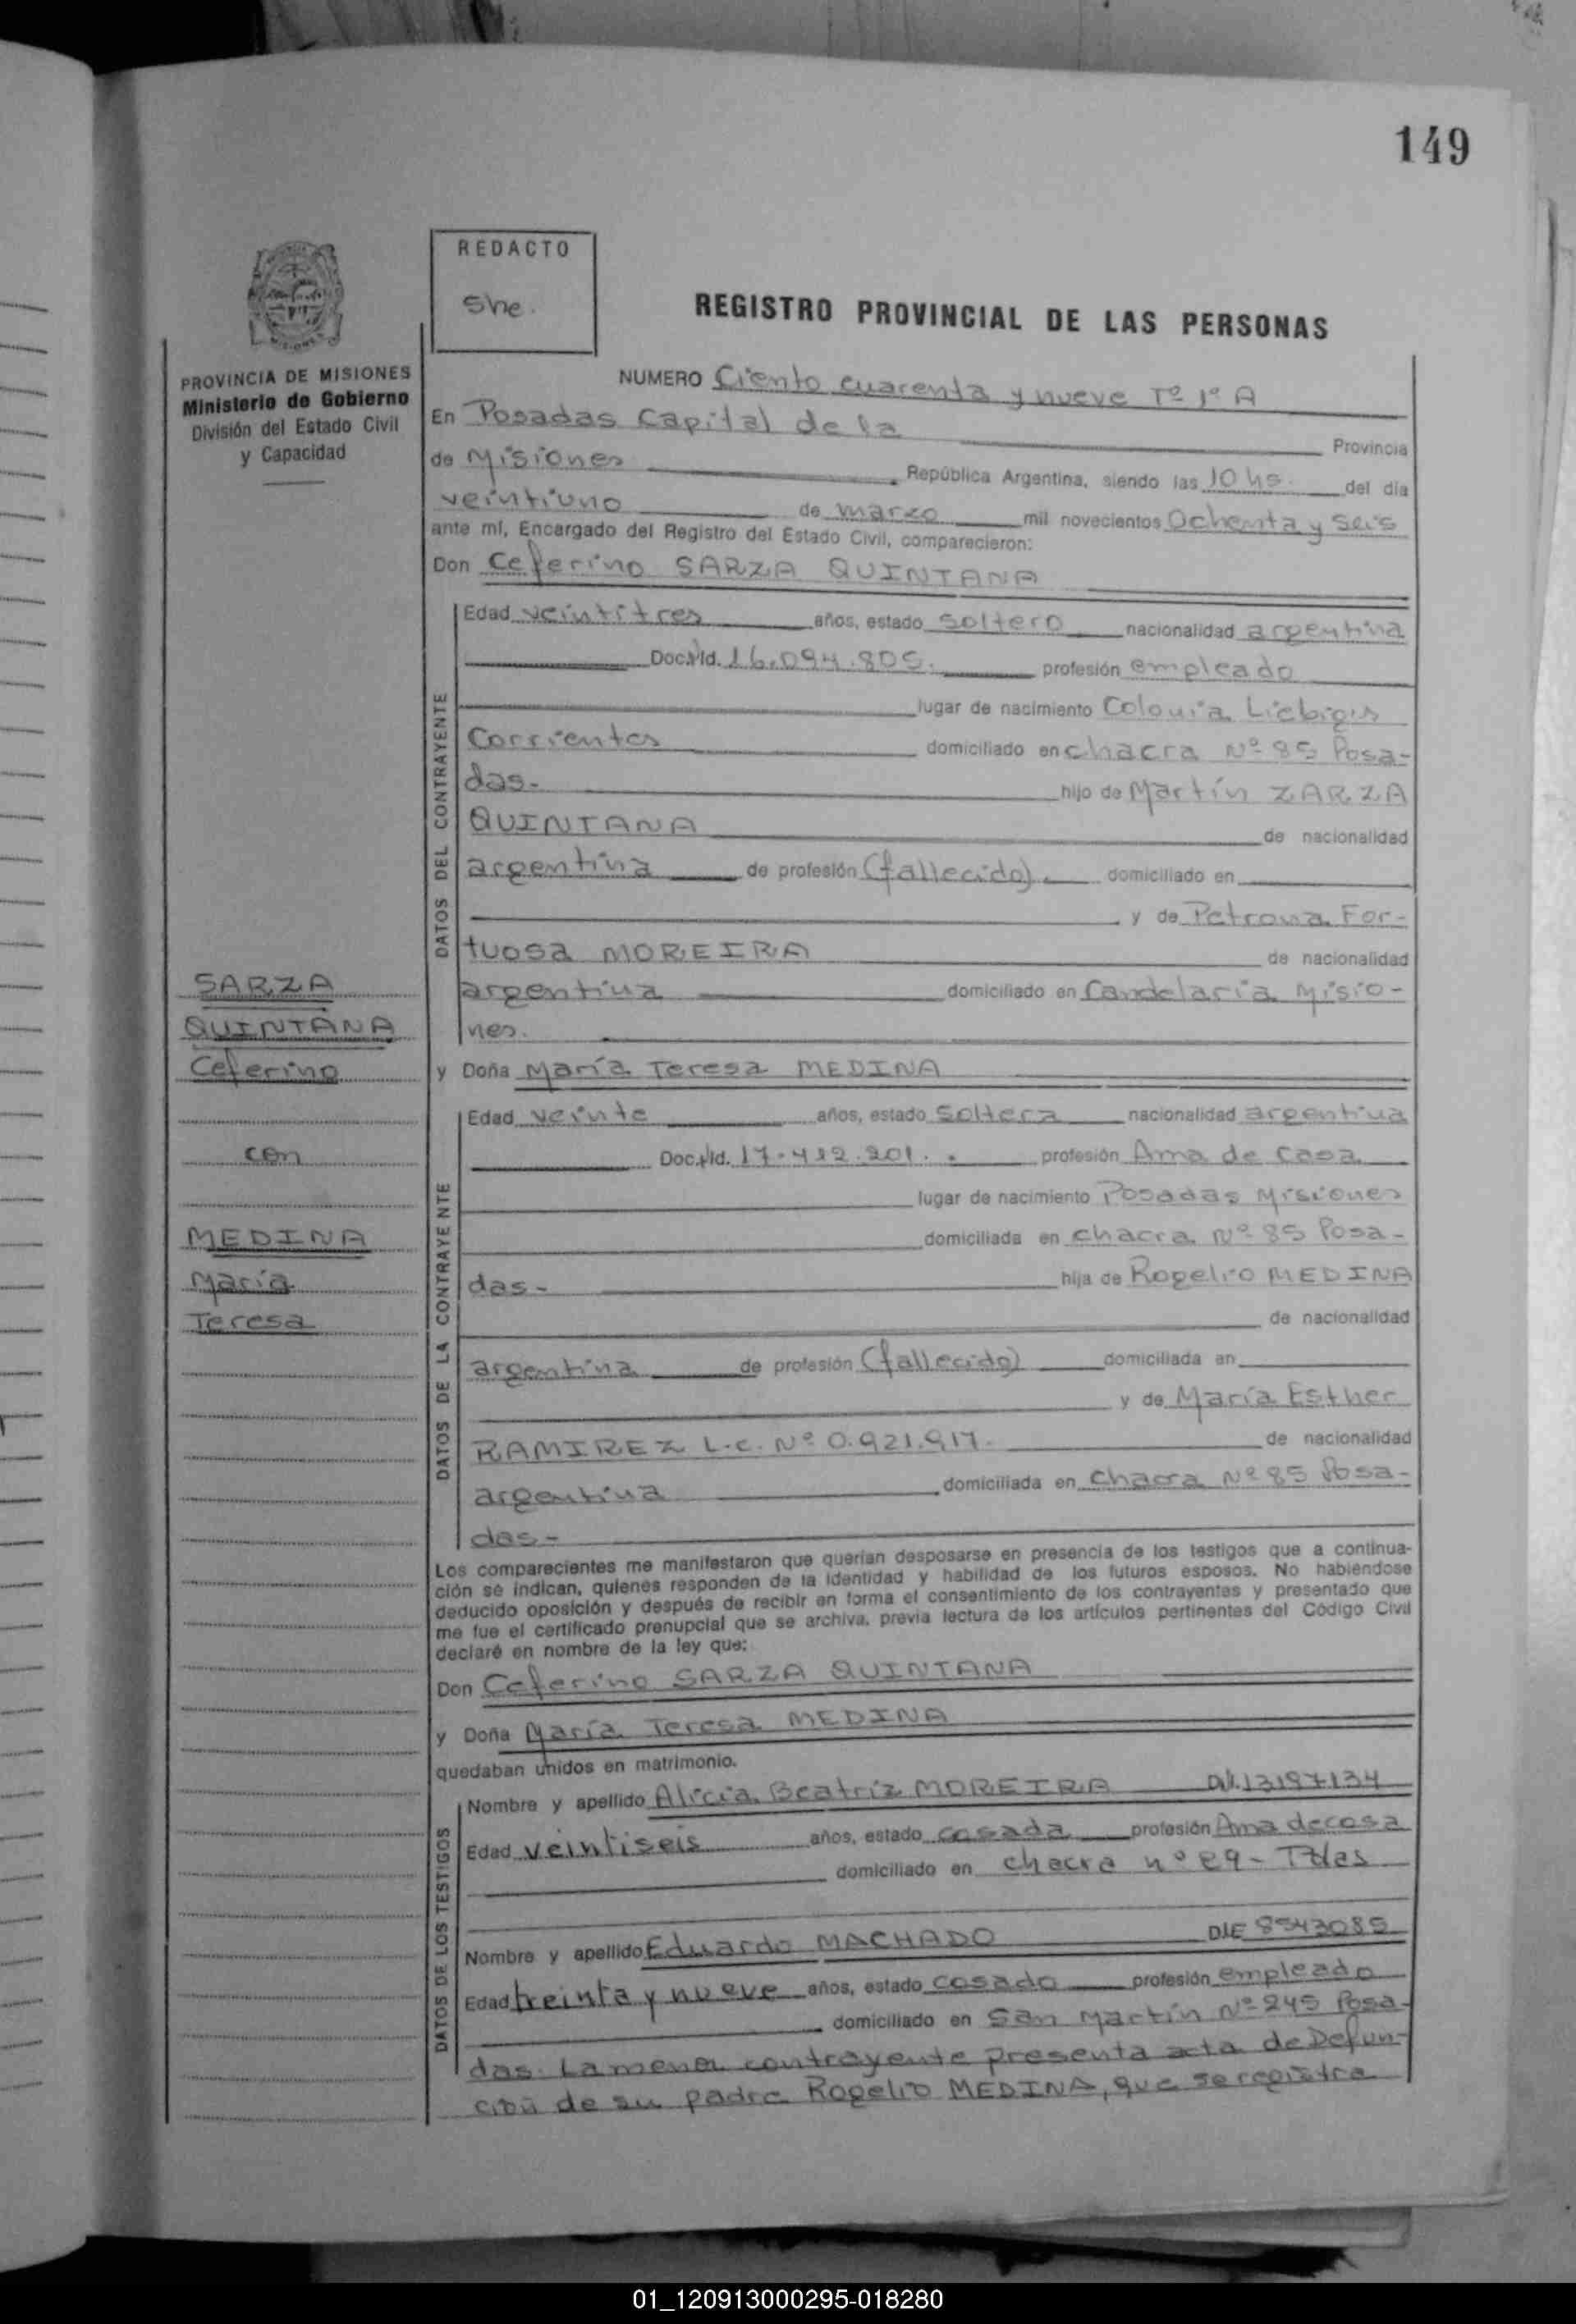 149
REDACTO
She.
REGISTRO PROVINCIAL DE LAS PERSONAS
PROVINCIA DE MISIONES
Ministerio de Gobierno
División del Estado Civil
y Capacidad
NUMERO Ciento cuarenta y nueve Tº 1º A
En Posadas Capital de la Provincia
de Misiones República Argentina, siendo las 10 hs. del día
veintiuno de marzo mil novecientos Ochenta y Seis
ante mí, Encargado del Registro del Estado Civil, comparecieron:
Don Ceferino SARZA QUINTANA
DATOS DEL CONTRAYENTE
Edad veintitres años, estado soltero nacionalidad argentina
Doc. Id. 16.094.805. profesión empleado
lugar de nacimiento Colonia Liebigis
Corrientes domiciliado en chacra Nº 85 Posa-
das- hijo de Martín ZARZA
QUINTANA de nacionalidad
argentina de profesión (fallecido). domiciliado en
y de Petrona For-
tuosa MOREIRA de nacionalidad
argentina domiciliado en Candelaria Misio-
nes.
SARZA
QUINTANA
Ceferino
con
MEDINA
María
Teresa
y Doña María Teresa MEDINA
DATOS DE LA CONTRAYENTE
Edad veinte años, estado soltera nacionalidad argentina
Doc. Id. 17.412.201. profesión Ama de casa
lugar de nacimiento Posadas Misiones
domiciliada en chacra Nº 85 Posa-
das- hija de Rogelio MEDINA
de nacionalidad
argentina de profesión (fallecido) domiciliada en
y de María Esther
RAMIREZ L.C. Nº 0.921.917. de nacionalidad
argentina domiciliada en chacra Nº 85 Posa-
das-
Los comparecientes me manifestaron que querían desposarse en presencia de los testigos que a continua-
ción se indican, quienes responden de la identidad y habilidad de los futuros esposos. No habiéndose
deducido oposición y después de recibir en forma el consentimiento de los contrayentes y presentado que
me fue el certificado prenupcial que se archiva, previa lectura de los artículos pertinentes del Código Civil
declaré en nombre de la ley que:
Don Ceferino SARZA QUINTANA
y Doña María Teresa MEDINA
quedaban unidos en matrimonio.
DATOS DE LOS TESTIGOS
Nombre y apellido Alicia Beatriz MOREIRA 13197134
Edad veintiseis años, estado casada profesión Ama de casa
domiciliado en chacra nº 89
Nombre y apellido Eduardo MACHADO DIE 8543085
Edad treinta y nueve años, estado casado profesión empleado
domiciliado en San Martín Nº 245 Posa-
das. La menor contrayente presenta acta de Defun-
ción de su padre Rogelio MEDINA, que se registra
01_120913000295-018280